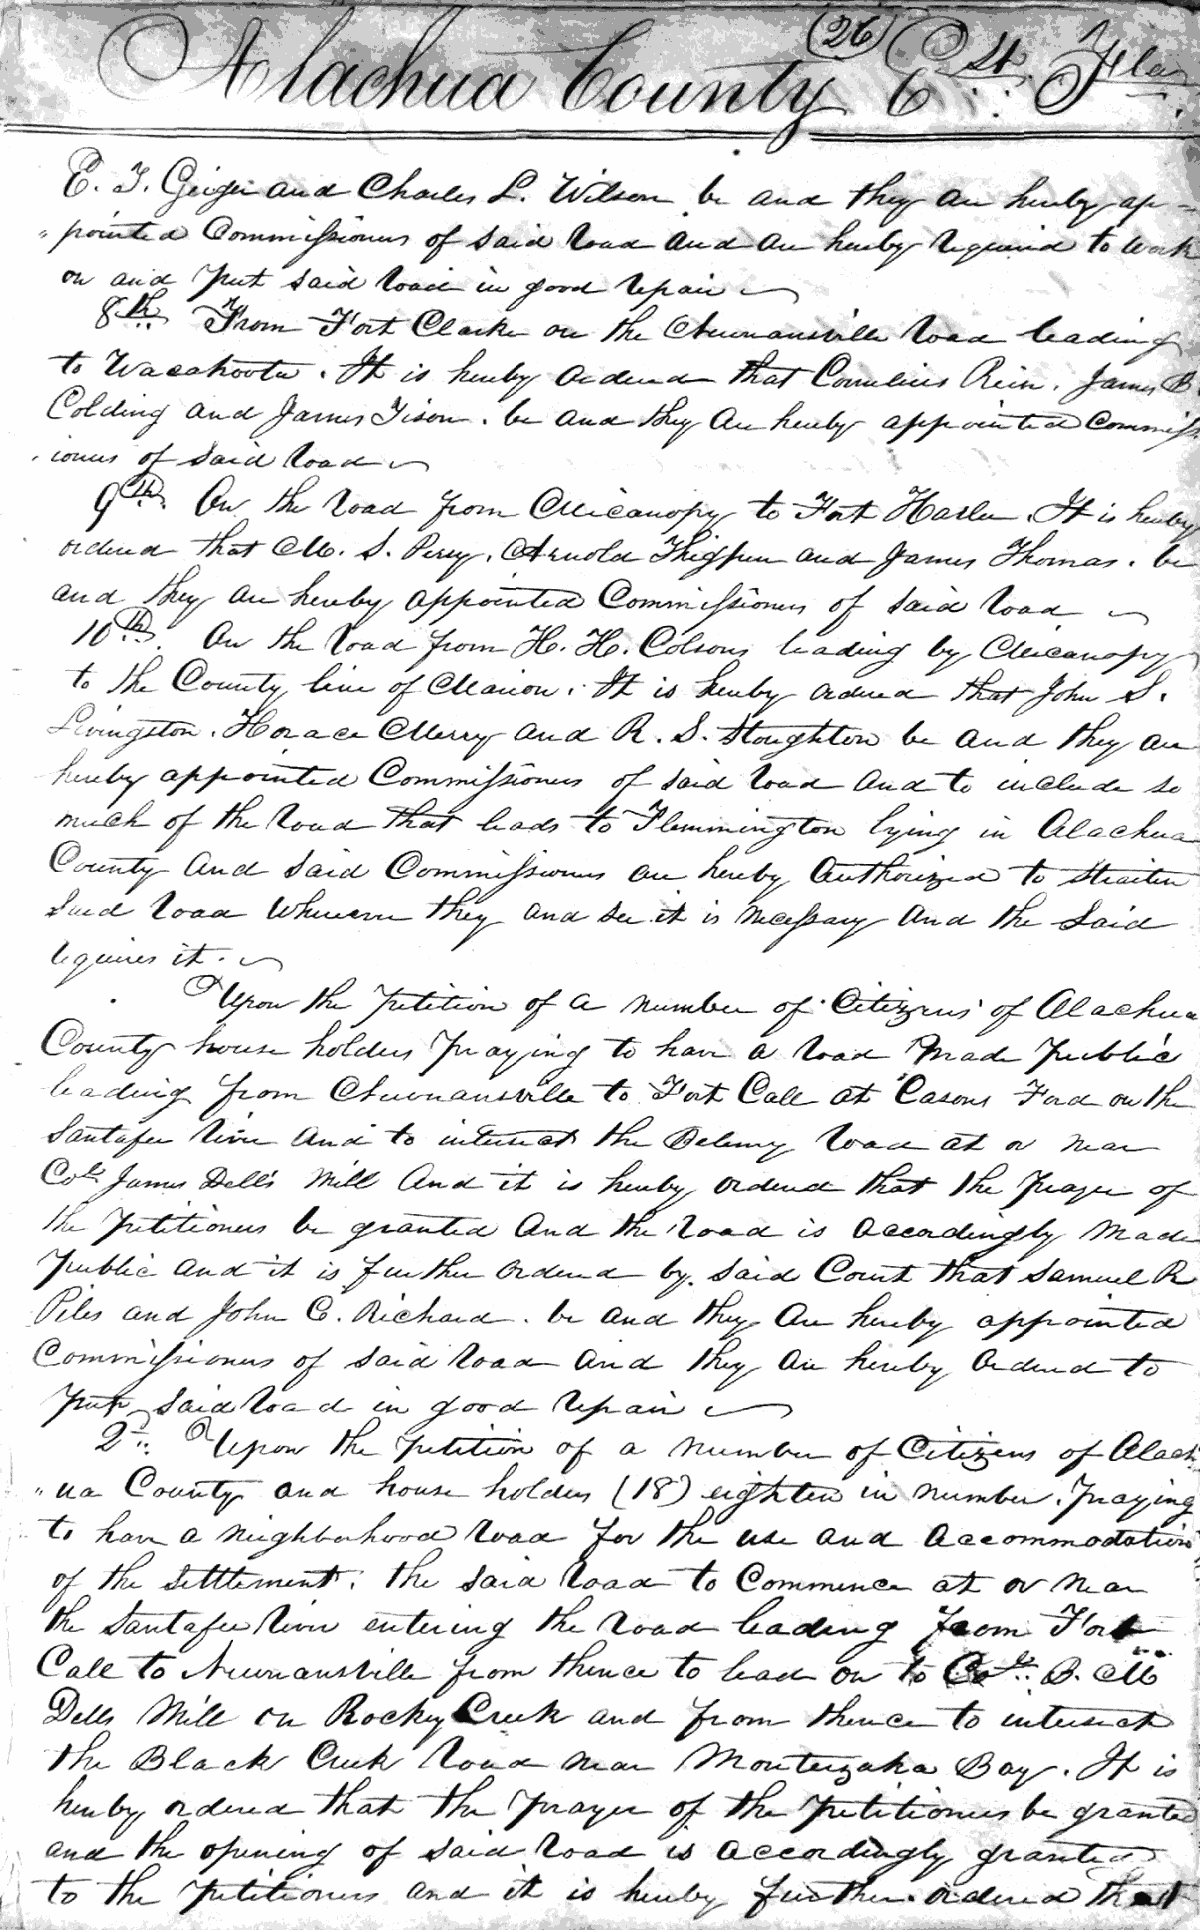 (26)
Alachua County Ct. Fla.
E. T. Geiger and Charles L. Wilson be and they are hereby ap-
"pointed Commissioners of said road and are hereby required to work
on and put said road in good repair
8th. From Fort Clarke on the Newnansville road leading
to Wacahoota. It is hereby ordered that Cornelius Rein, James B
Colding and James Tison. be and they are hereby appointed Commiss
ioners of said road
9th. On the road from Micanopy to Fort Harlee. It is hereby
ordered that M. S. Perry, Arnold Thigpen and James Thomas. be
and they are hereby appointed Commissioners of said road
10th. On the road from H. H. Colsons leading by Micanopy
to the County line of Marion. It is hereby ordered that John S.
Livingston. Horace Merry and R. S. Stoughton be and they are
hereby appointed Commissioners of said road and to include so
much of the road that leads to Flemmington lying in Alachua
County and said Commissioners are hereby authorized to straiten
said road wherever they and see it is necessary and the said
requires it.
Upon the petition of a number of Citizens of Alachua
County house holders praying to have a road made public
leading from Newnansville to Fort Call at Casons Ford on the
Santafee river and to intersect the Bellemy road at or near
Col. James Dell's mill and it is hereby ordered that the prayer of
the petitioners be granted and the road is accordingly made
public and it is further ordered by said Court that Samuel R
Piles and John C. Richard. be and they are hereby appointed
Commissioners of said road and they are hereby ordered to
put said road in good repair
2nd. Upon the petition of a number of Citizens of Alach
"ua County and house holders (18) eighteen in number. praying
to have a neighborhood road for the use and accommodation
of the settlement. the said road to commence at or near
the Santafee river entering the road leading from Fort
Call to Newnansville from thence to lead on to Col. B. M
Dells Mill on Rocky Creek and from thence to intersect
the Black Creek road near Monterzaka Bay. It is
hereby ordered that the prayer of the petitioners be granted
and the opening of said road is accordingly granted
to the petitioners and it is hereby further ordered that